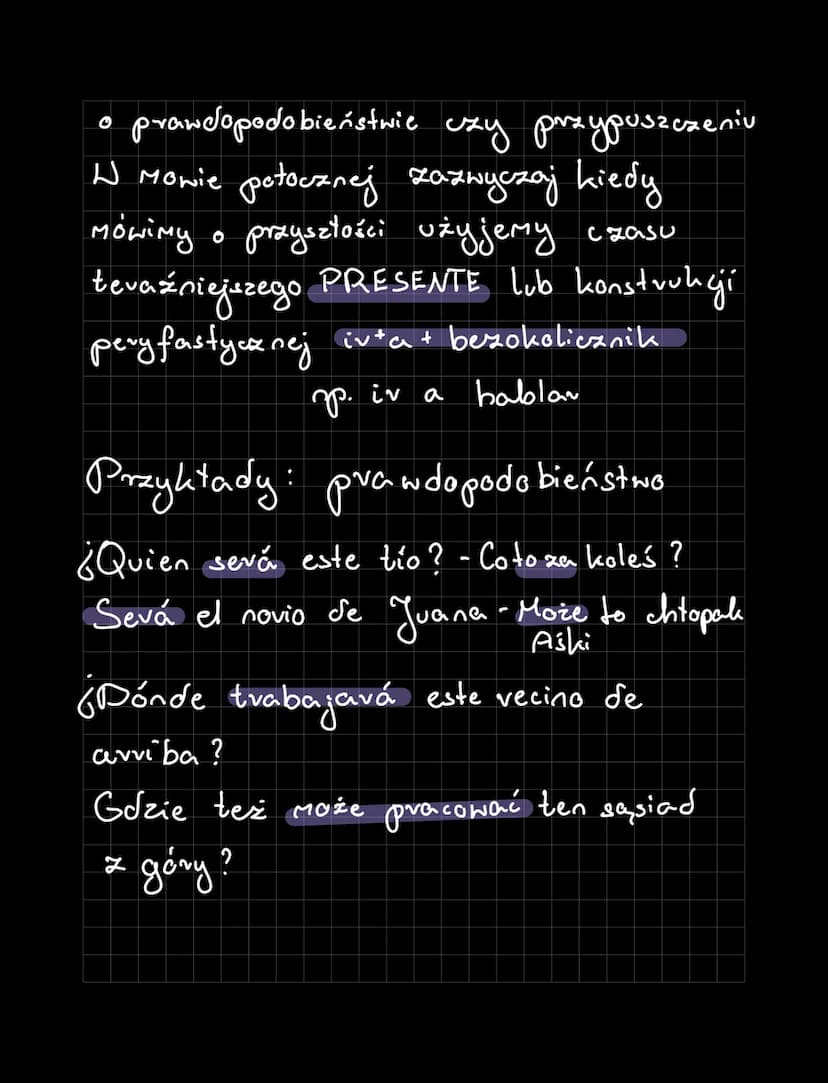 o prawdopodobieństwie czy przypuszczeniu
W mowie potocznej zazwyczaj kiedy
mówimy o przyszłości użyjemy czasu
teraźniejszego PRESENTE lub konstrukcji
peryfastycznej ir+a+ bezokolicznik
np. ir a hablar
Przykłady: prawdopodobieństwo
¿Quien será este tío? - Co to za koleś?
Será el novio de Juana - Może to chłopak
Aśki
¿Dónde trabajará este vecino de
arriba?
Gdzie też może pracować ten sąsiad
z góry?